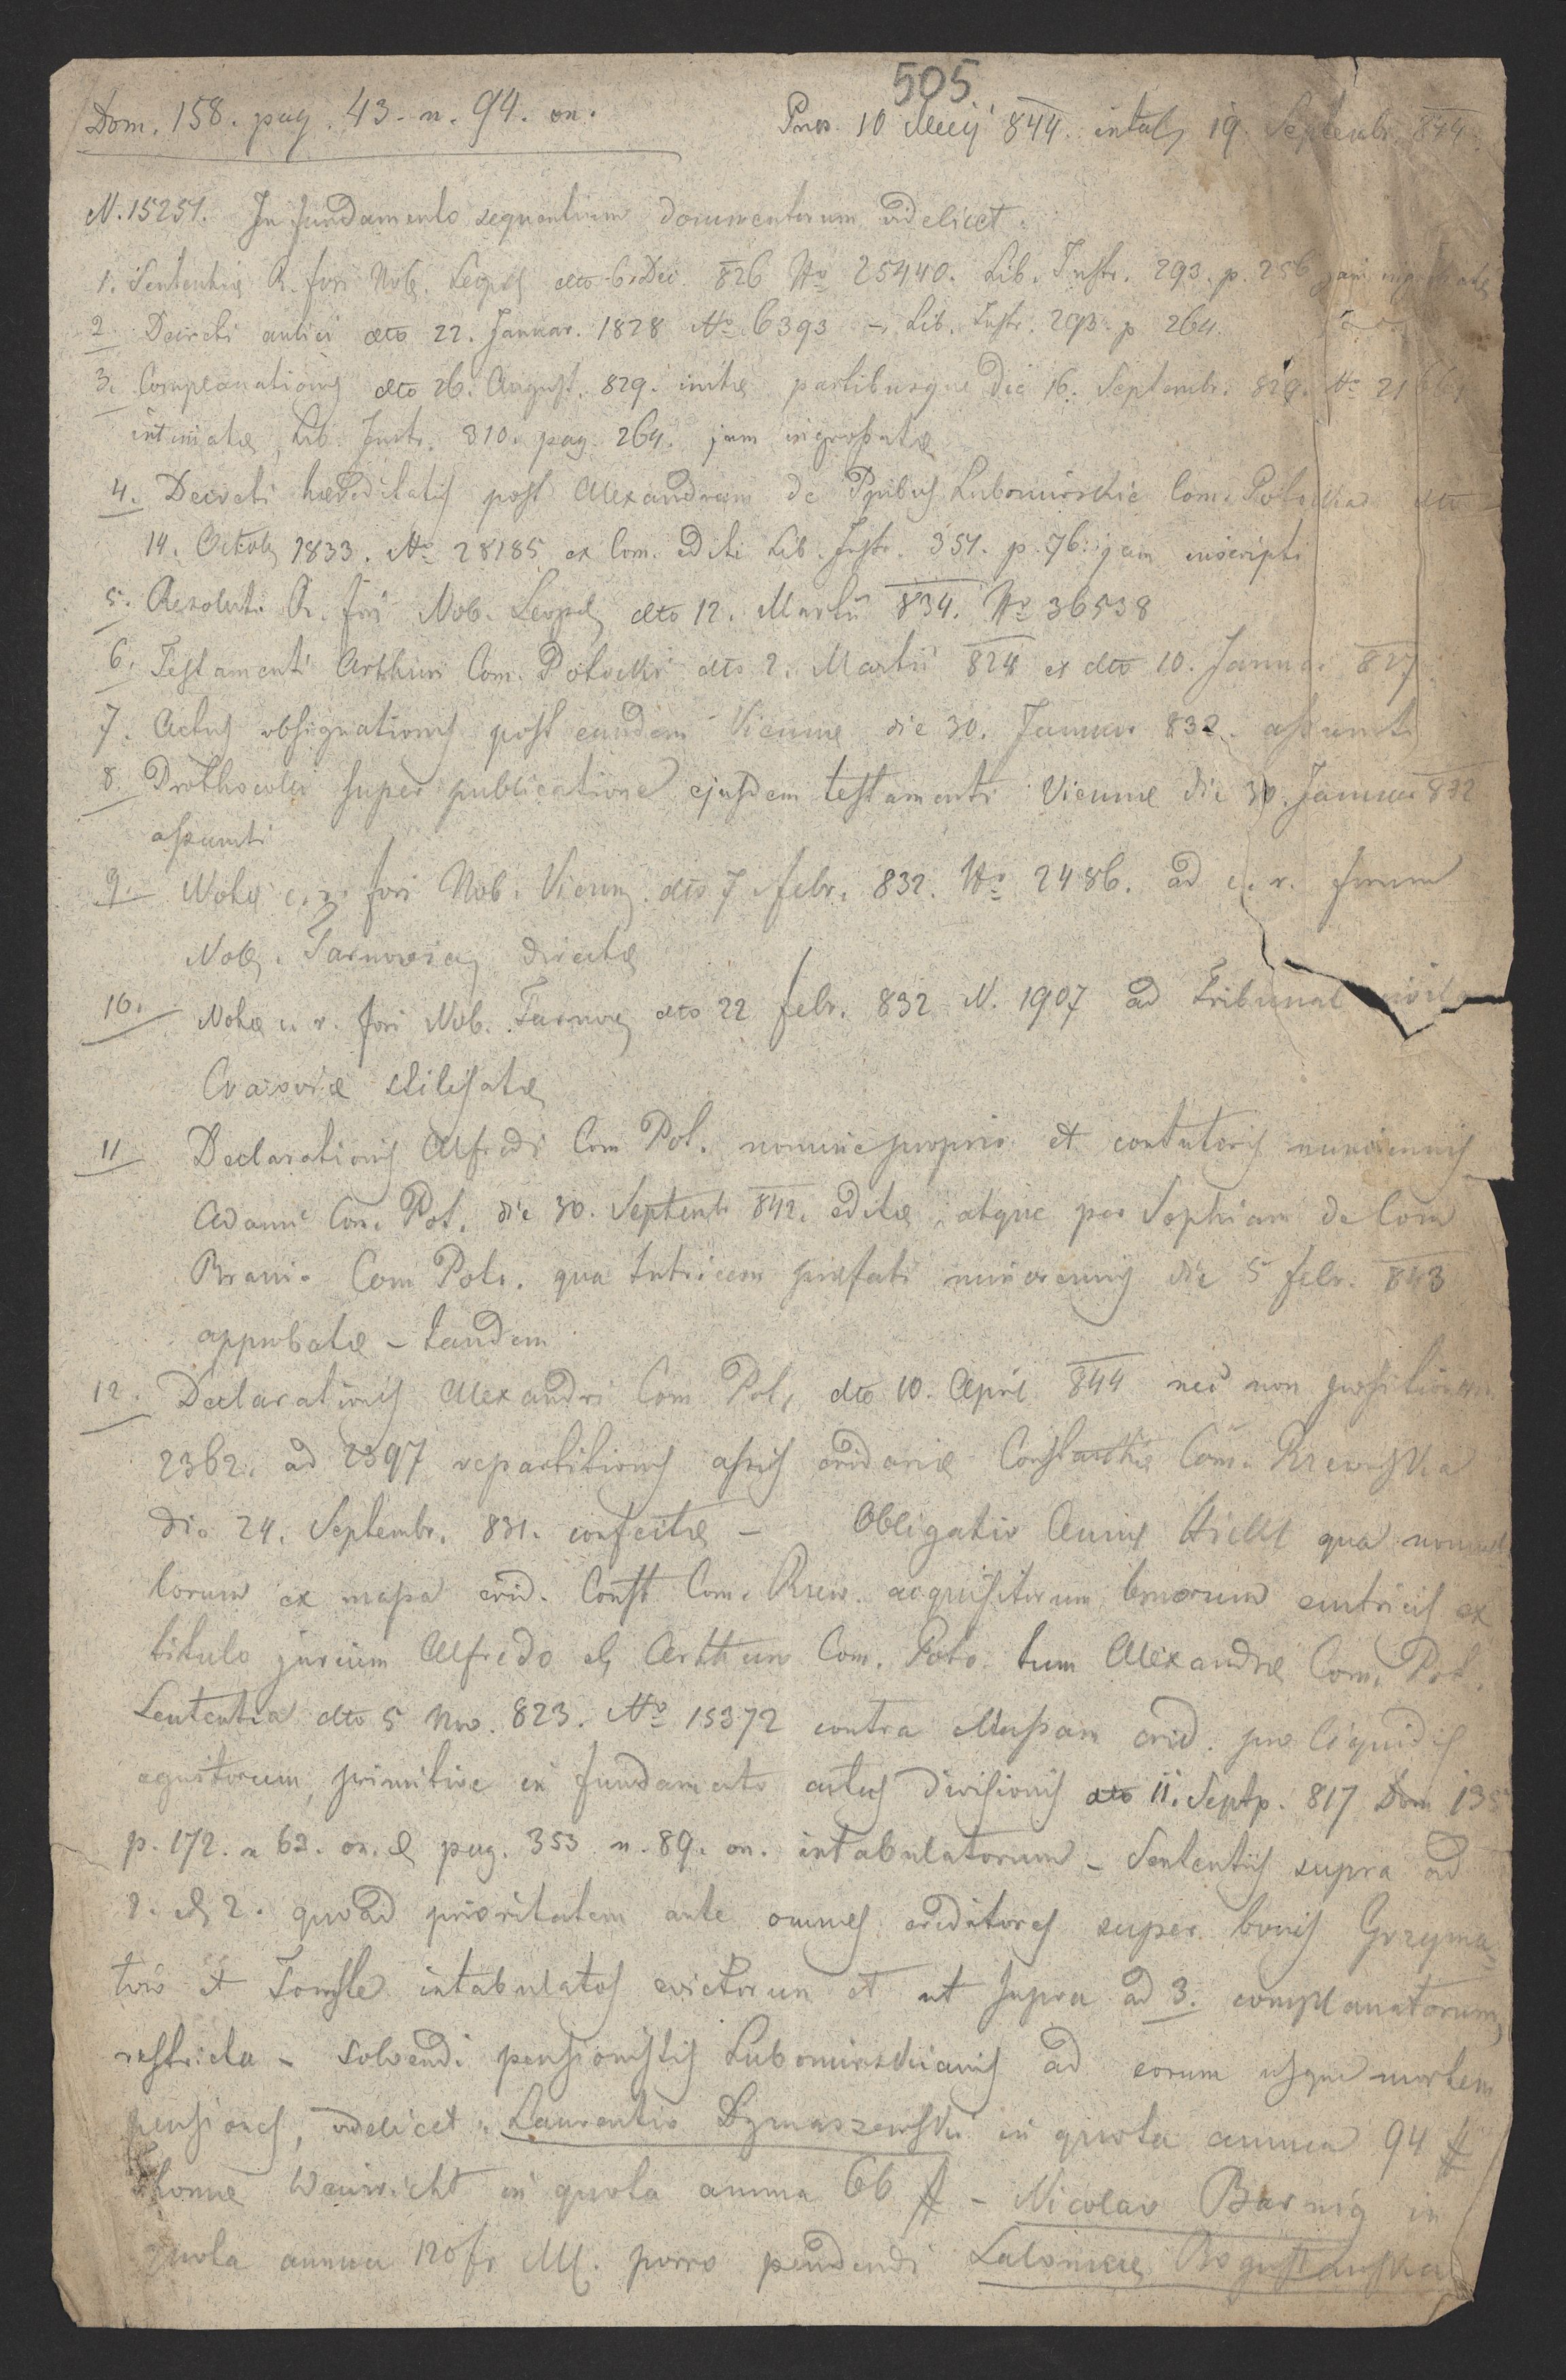 505
Dom. 158. pag. 43. n. 94. on.
Pres. 10 Maij 844. intab 19 Septembr. 844.
N. 15251. In fundamento sequentium documentorum videlicet:
1. Sententiæ R. fori Nob. Leopol dto 6 Dec. 826 No 25440. Lib. Instr. 293. p. 256 jam ingrossatæ
2 Decreti aulici dto 22. Januar. 1828 No 6393 – Lib. Instr. 293. p 264.
3. Complanationis dto 26. August. 829. initæ partibusque die 16. Septembr. 829. No 21661
intimatæ, Lib. Instr. 310. pag. 264. jam ingrossatæ
4. Decreti hæreditatis post Alexandram de Ppibus Lubomirskie Com. Potockia dto
14. Octob 1833. No 28185 ex Com. editi Lib. Instr. 351. p. 76. jam inscripti
5. Resoluti R. fori Nob. Leopol dto 12. Martii 834. No 36538
6. Testamenti Arthuri Com. Potocki dto 2. Martii 828 et dto 10. Januar 827.
7. Actus obsignationis post eundem Viennæ die 30. Januar 832. assumti
8. Prothocolli super publicatione ejusdem testamenti Viennæ die 30. Januar 832
assumti
9. – Notæ c. r. fori Nob. Vienn. dto 7 febr. 832. No 2486. ad c. r. forum
Nob. Tarnovien directæ
10. Notæ c. r. fori Nob. Tarnov dto 22 febr. 832 N. 1907 ad Tribunal civile
Cracoviæ stilisatæ
11 Declarationis Alfredi Com Pot. nomine proprio et contutoris minorennis
Adami Com. Pot. die 30. Septemb 842. editæ, atque per Sophiam de Com
Branic Com Poto. qua tutricem præfati minorennis die 5 febr. 843
approbatæ – tandem
12. Declarationis Alexandri Com Pot. dto 10. April 844 nec non positionum
2362. ad 2397 repartitionis assis cridariæ Constantiæ Com. Rzewuska
die 24. Septembr. 831. confectæ – Obligatio Annæ Hickl qua nonnul
lorum ex massa crid. Const Com. Rzew. acquisitorum bonorum emtricis ex
titulo jurium Alfredo et Arthuro Com. Poto. tum Alexandræ Com. Pot.
Sententia dto 5 Nov. 823. No 15372 contra Massam crid. pro liquidis
agnitorum, primitive in fundamento actus divisionis dto 11. Septp. 817 Dom 135
p. 172. n 62. on. & pag. 353 n. 89. on. intabulatorum – Sententiis supra ad
1. et 2. quoad prioritatem ante omnes creditores super bonis Grzyma
łów et Touste intabulatos evictorum et ut supra ad 3. complanatorum,
restricta – solvendi pensionistis Lubomirskianis ad eorum usque mortem
pensiones, videlicet: Laurentio Dymaszewski in quota annua 94 #
Thomæ Weinricht in quota annua 66 # – Nicolao Barnig in
quota annua 120 fr M. porro pendendi Salomeæ Bogusławska